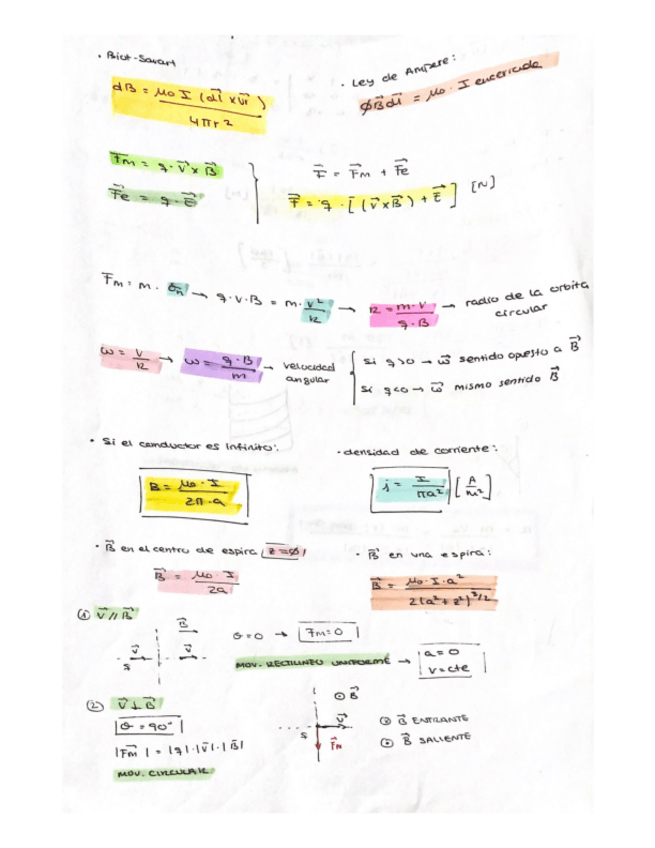 · Biot-Savart
dB = μ₀ I (dl⃗ x u⃗r) / 4πr²
· Ley de Ampere:
∮B⃗dl⃗ = μ₀ · I encerrada
F⃗m = q · v⃗ x B⃗
F⃗e = q · E⃗
F⃗ = F⃗m + F⃗e
F⃗ = q · [(v⃗xB⃗) + E⃗] [N]
F⃗m = m · a⃗n → q·v·B = m · v²/R → R = m·v / q·B → radio de la orbita circular
ω = v/R → ω = q·B / m → velocidad angular
Si q>0 → ω⃗ sentido opuesto a B⃗
Si q<0 → ω⃗ mismo sentido B⃗
· Si el conductor es Infinito:
B = μ₀ · I / 2π·a
· densidad de corriente:
j = I / πa² [A/m²]
· B⃗ en el centro de espira |z=ø|
B⃗ = μ₀ · I / 2a
· B⃗ en una espira:
B⃗ = μ₀·I·a² / 2(a²+z²)^3/2
① v⃗ // B⃗
B⃗
v⃗ v⃗
q
θ=0 → Fm=0
MOV. RECTILINEO UNIFORME → a=0
v=cte
② v⃗ ⊥ B⃗
θ = 90°
|F⃗m| = |q|·|v⃗|·|B⃗|
MOV. CIRCULAR
⊙ B⃗
v⃗
q
F⃗m
⊗ B⃗ ENTRANTE
⊙ B⃗ SALIENTE